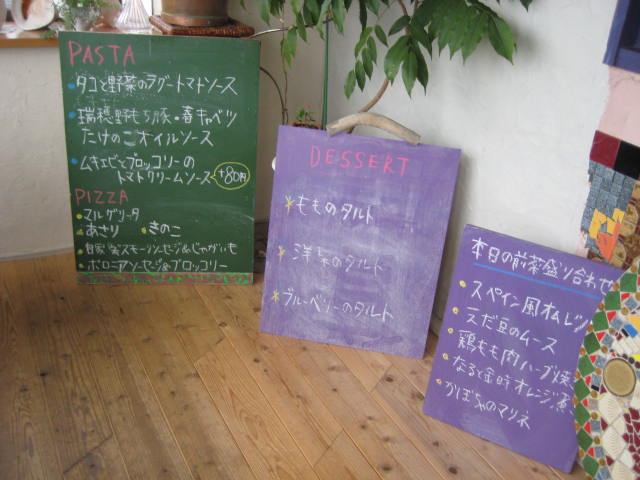 PASTA
タコと野菜のラグートマトソース
瑞穂野もち豚・春キャベツ
たけのこオイルソース
ムキエビとブロッコリーの
トマトクリームソース +80円
PIZZA
マルゲリータ
あさり きのこ
自家製スモークソーセージ&じゃがいも
ボロニアソーセージ&ブロッコリー
DESSERT
もものタルト
洋梨のタルト
ブルーベリーのタルト
本日の前菜盛り合わせ
スペイン風オムレツ
えだ豆のムース
鶏もも肉ハーブ焼
なると金時オレンジ煮
かぼちゃのマリネ